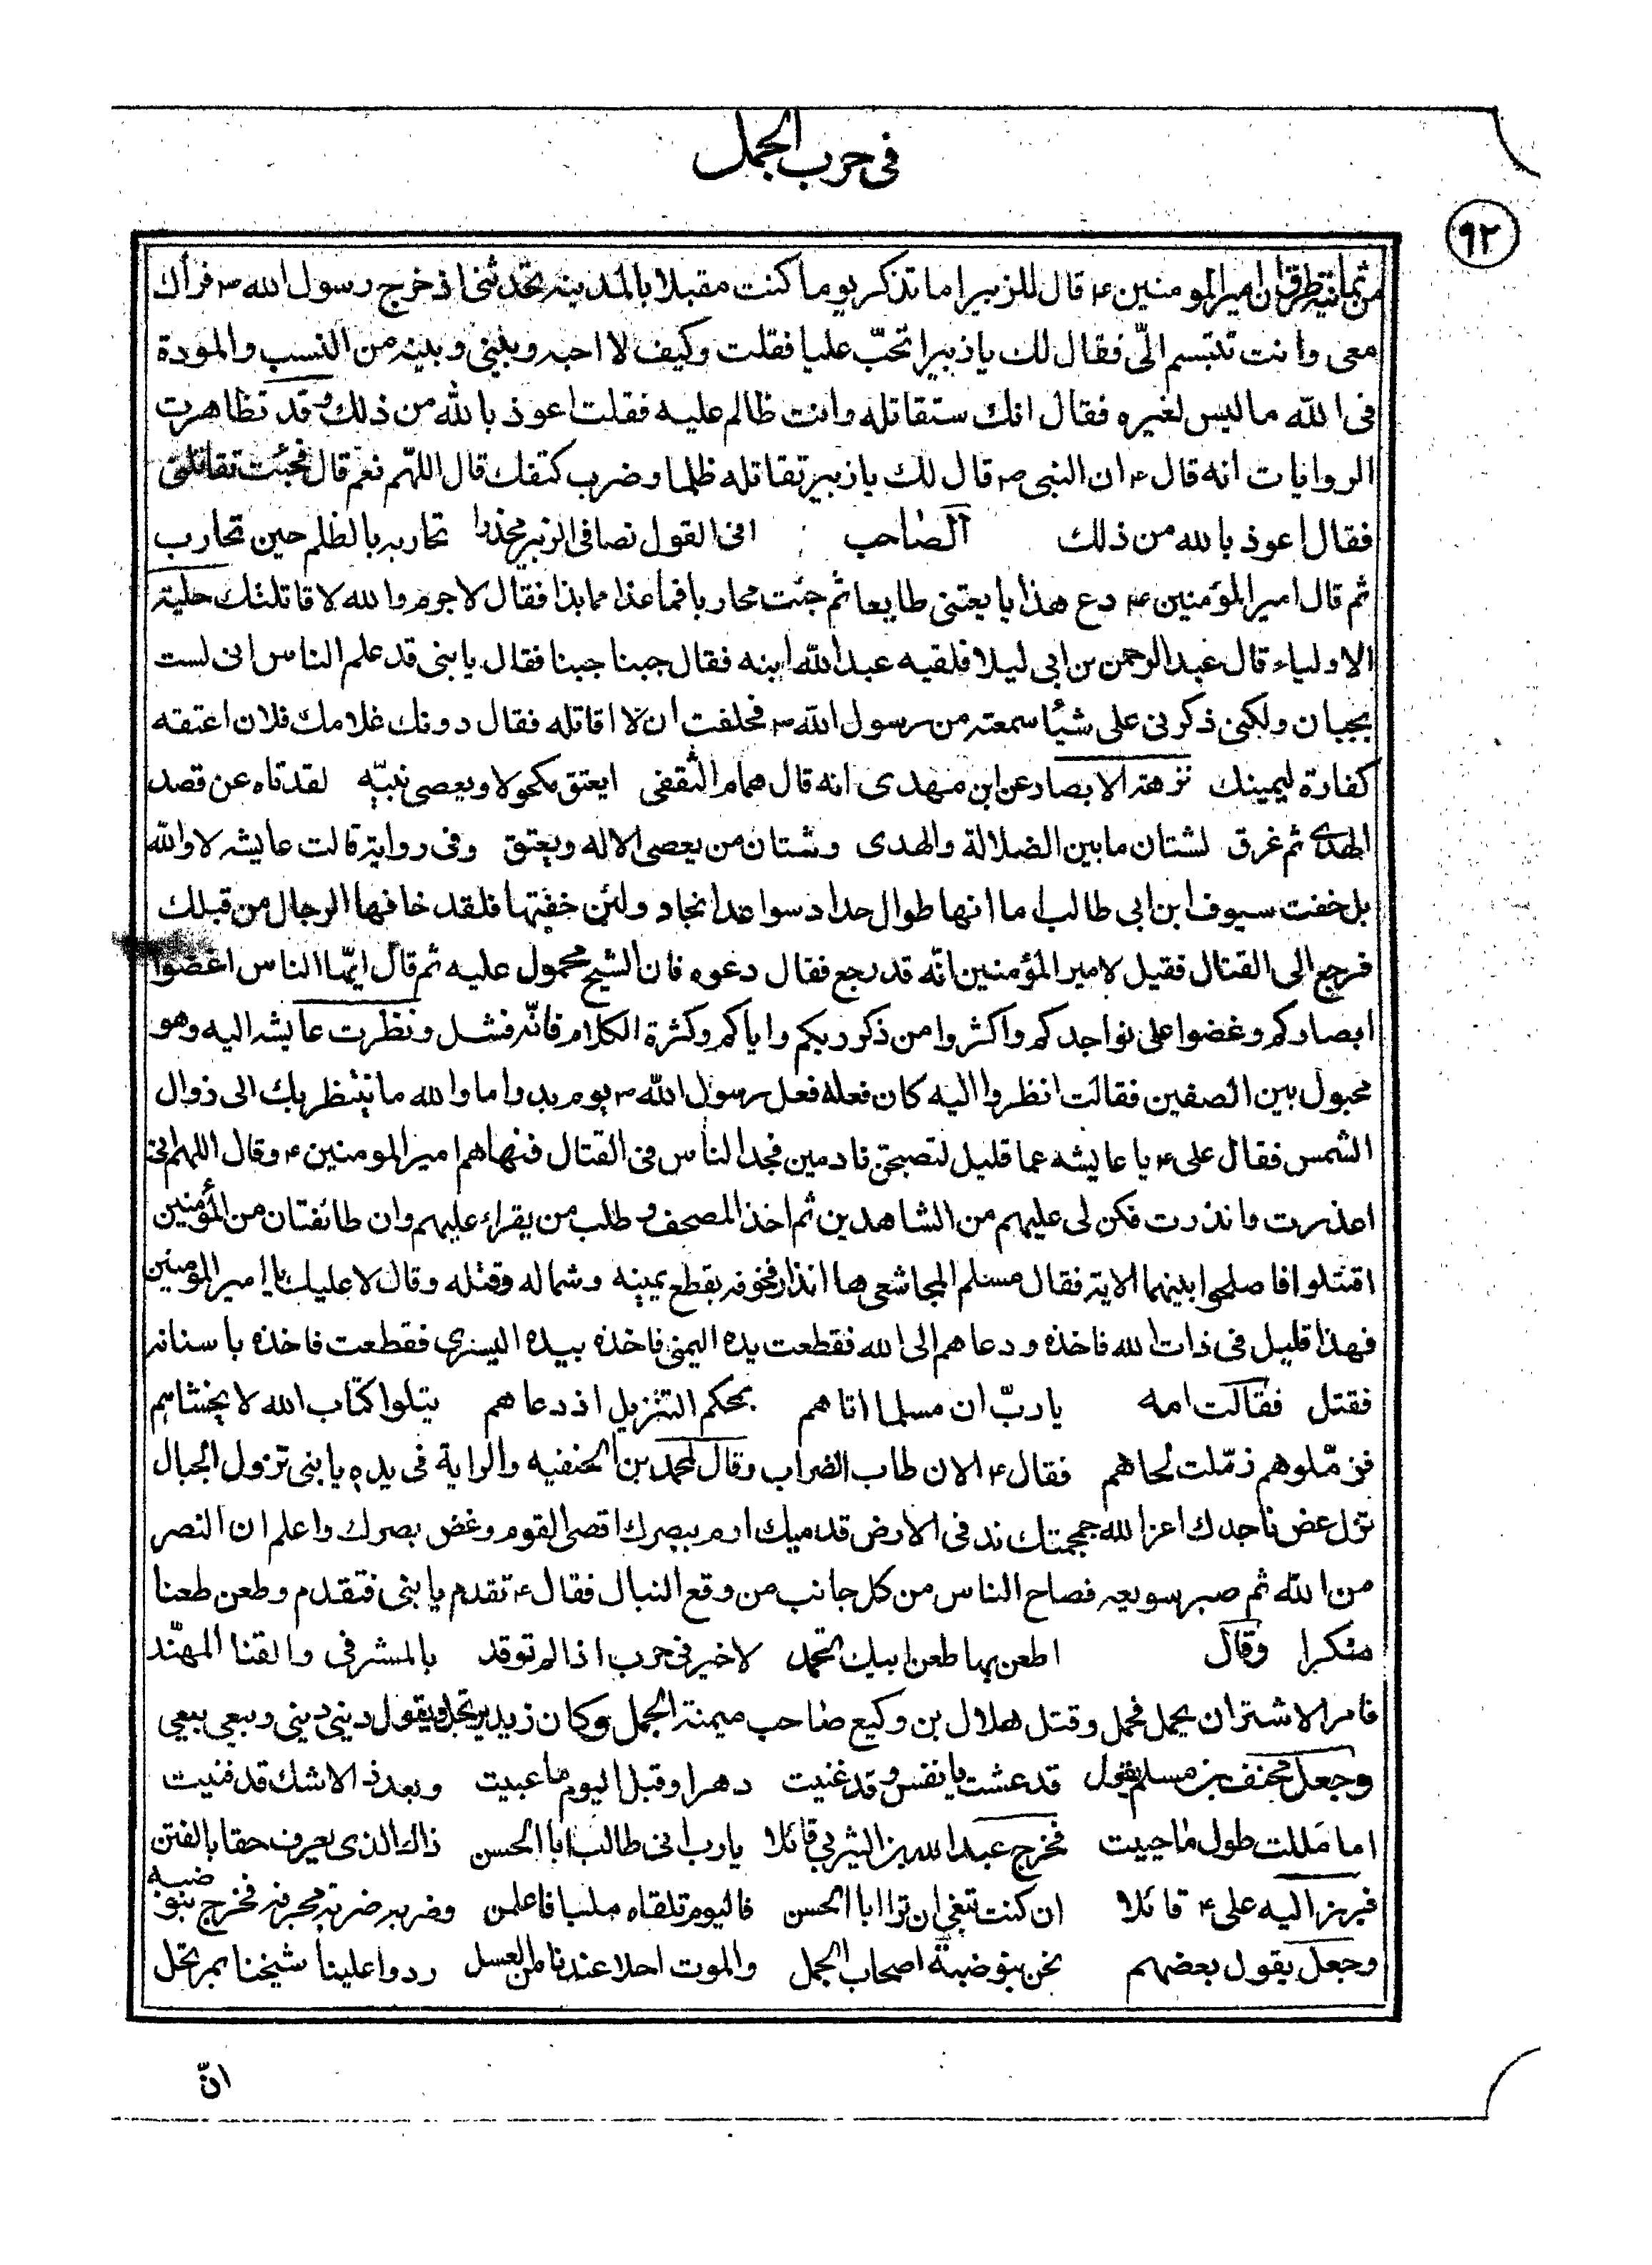 فى حرب الجمل
٩٢
من ثمانية طرق ان امير المومنين ع قال للزبير اما تذكر يوما كنت مقبلا بالمدينه تحدثنى اذ خرج رسول الله ص فرأك
معى وانت تتبسم الىّ فقال لك يا زبير اتحبّ عليا فقلت وكيف لا احبه وبينى وبينه من النسب والمودة
فى الله ما ليس لغيره فقال انك ستقاتله وانت ظالم عليه فقلت اعوذ بالله من ذلك وقد تظاهرت
الروايات انه قال ع ان النبى ص قال لك يا زبير تقاتله ظلما وضرب كتفك قال اللهم نعم قال فجئت تقاتلنى
فقال اعوذ بالله من ذلك الصاحب افى القول نصا فى الزبير محذرا تحاربه بالظلم حين تحارب
ثم قال امير المؤمنين ع دع هذا بايعتنى طايعا ثم جئت محاربا فما عدا مما بدا فقال لا جرم والله لا قاتلنك حلية
الاولياء قال عبد الرحمن بن ابى ليلا فلقيه عبد الله ابنه فقال جبنا جبنا فقال يا بنى قد علم الناس انى لست
بجبان ولكن ذكرنى على شيئا سمعته من رسول الله ص فحلفت ان لا اقاتله فقال دونك غلامك فلان اعتقه
كفارة ليمينك نزهة الابصار عن ابن مهدى انه قال همام الثقفى ايعتق مكحولا ويعصى نبيّه لقد تاه عن قصد
الهدى ثم غرق لشتان ما بين الضلالة والهدى وشتان من يعصى الاله ويعتق وفى رواية قالت عايشه لا والله
بل خفت سيوف ابن ابى طالب اما انها طوال حداد سواعد انجاد ولئن خفتها فلقد خافها الرجال من قبلك
فرجع الى القتال فقيل لامير المؤمنين انّه قد رجع فقال دعوه فان الشيخ محمول عليه ثم قال ايّها الناس اغضوا
ابصاركم وغضوا على نواجدكم واكثروا من ذكر ربكم واياكم وكثرة الكلام فانّه فشل ونظرت عايشه اليه وهو
محبول بين الصفين فقالت انظروا اليه كان فعله فعل رسول الله ص يوم بدر اما والله ما ينتظر بك الى زوال
الشمس فقال على ع يا عايشه عما قليل لتصبحن نادمين فجد الناس فى القتال فنهاهم امير المومنين ع وقال اللهم انى
اعذرت وانذرت فكن لى عليهم من الشاهدين ثم اخذ المصحف وطلب من يقراء عليهم وان طائفتان من المؤمنين
اقتتلوا فاصلحوا بينهما الاية فقال مسلم المجاشعى ها انذا فخوفه بقطع يمينه وشماله وقتله وقال لا عليك يا امير المومنين
فهذا قليل فى ذات الله فاخذه ودعاهم الى الله فقطعت يده اليمنى فاخذه بيده اليسرى فقطعت فاخذه باسنانه
فقتل فقالت امه يا ربّ ان مسلما اتاهم بمحكم التنزيل اذ دعاهم يتلوا كتاب الله لا يخشاهم
فزمّلوهم زمّلت لحاهم فقال ع الان طاب الضراب وقال لمحمد بن الحنفيه والراية فى يده يا بنى تزول الجبال
تزل عض ناجدك اعز الله جمجمتك تد فى الارض قدميك ارم ببصرك اقصى القوم وغض بصرك واعلم ان النصر
من الله ثم صبر سويعه فصاح الناس من كل جانب من وقع النبال فقال ع تقدم يا بنى فتقدم وطعن طعنا
منكرا وقال اطعن بها طعن ابيك تحمد لا خير فى حرب اذا لم توقد بالمشرفى والقنا المهنّد
فامر الاشتر ان يحمل فحمل وقتل هلال بن وكيع صاحب ميمنة الجمل وكان زيد يرتجز ويقول دينى دينى وبيعى بيعى
وجعل مخنف بن مسلم يقول قد عشت يا نفس وقد غنيت دهرا وقبل اليوم ما عييت وبعد ذا لا شك قد فنيت
اما مللت طول ما حييت فخرج عبد الله بن اليثربى قائلا يا رب انى طالب ابا الحسن ذاك الذى يعرف حقا بالفتن
فبرز اليه على ع قائلا ان كنت تبغى ان ترا ابا الحسن فاليوم تلقاه مليا فاعلمن وضربه ضربة مجرفة فخرج بنو ضبه
وجعل يقول بعضهم نحن بنو ضبة اصحاب الجمل والموت احلا عندنا من العسل ردوا علينا شيخنا بمرتحل
انّ